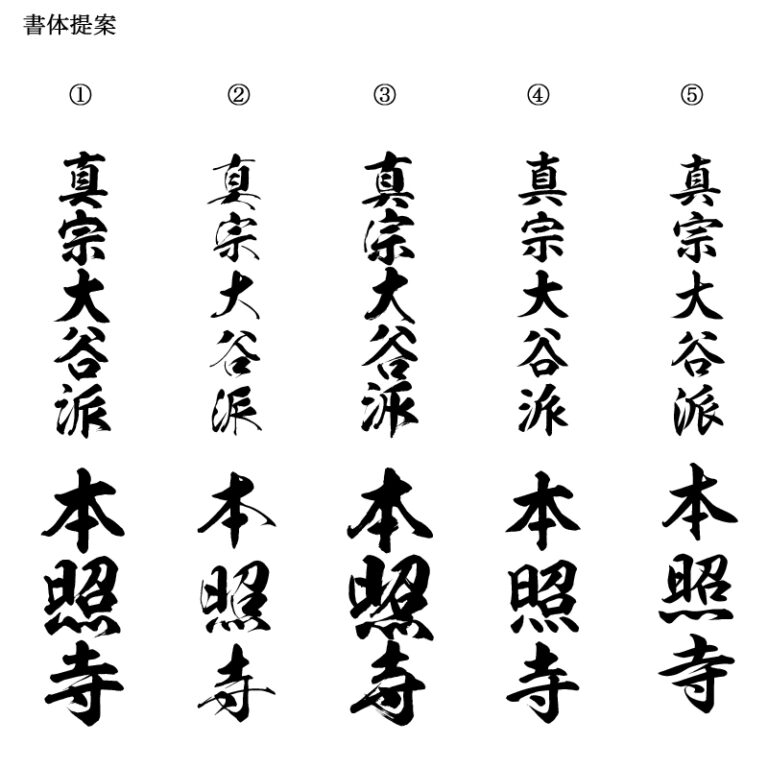 書体提案
①
真宗大谷派
本照寺
②
真宗大谷派
本照寺
③
真宗大谷派
本照寺
④
真宗大谷派
本照寺
⑤
真宗大谷派
本照寺